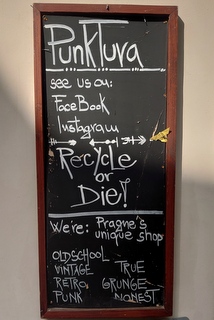 PunkTura
see us on:
FaceBook
Instagram
Recycle
or
Die!
We're: Prague's
unique shop
OLDSCHOOL
VINTAGE TRUE
RETRO GRUNGE
PUNK HONEST